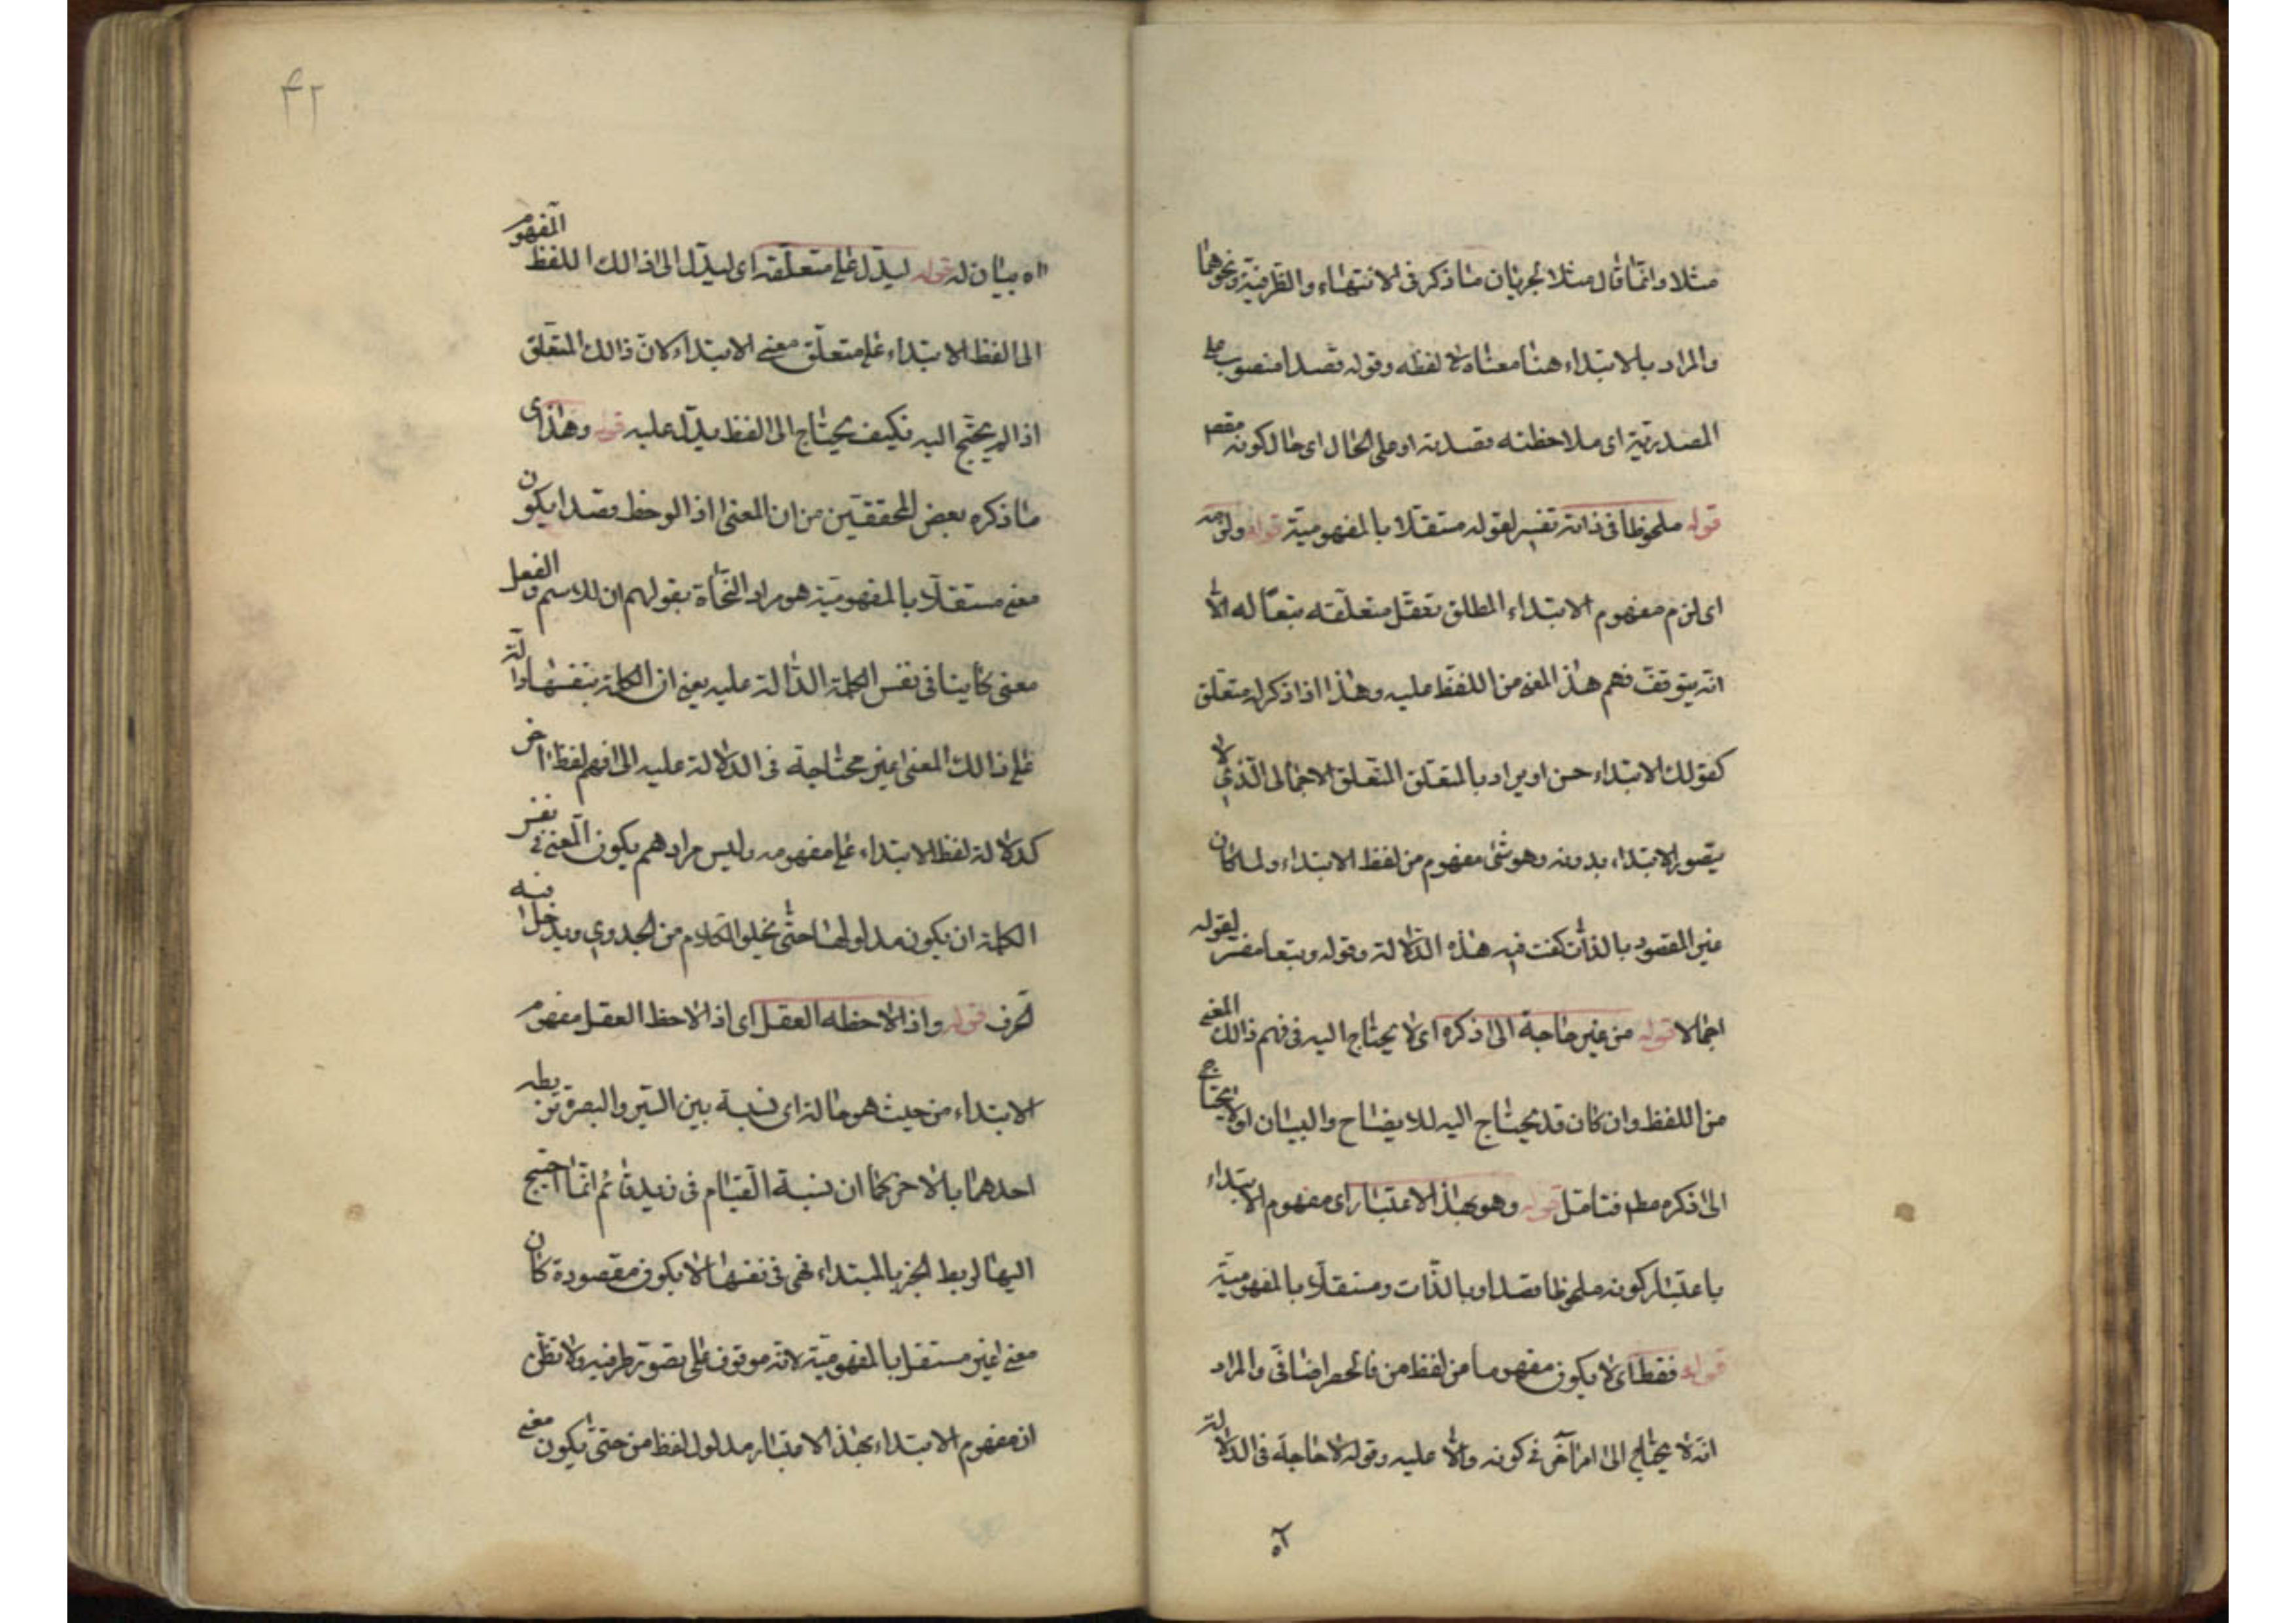 مثلا وانما قال مثلا لجريان ما ذكر فى الانتهاء والظرفية ونحوهما
والمراد بالابتداء هنا معناه لا لفظه وقوله قصدا منصوب على
المصدرية اى ملاحظته قصدية او على الحال اى حال كونه مقصـ
قوله ملحوظا فى ذاته تفسير لقوله مستقلا بالمفهومية قوله ولزمه
اى لزم مفهوم الابتداء المطلق تعقل متعلقه تبعا له الا
انه يتوقف فهم هذا المعنى من اللفظ عليه وهذا اذا ذكر له متعلق
كقولك الابتداء حسن او يراد بالمتعلق المتعلق الاجمالى الذي لا
يتصور الابتداء بدونه وهو شئ مفهوم من لفظ الابتداء ولما كان
غير المقصود بالذات كفت فيه هذه الدلالة وقوله وتبعا مفسر لقوله
اجمالا قوله من غير حاجة الى ذكره اى لا يحتاج اليه فى فهم ذالك المعنى
من اللفظ وان كان قد يحتاج اليه للايضاح والبيان اولا يحتاج
الى ذكره مطم فتامل قوله وهو بهذا الاعتبار اى مفهوم الابتداء
باعتبار كونه ملحوظا قصدا وبالذات ومستقلا بالمفهومية
قوله فقط اى لا يكون مفهوما من لفظ من فالحصر اضافى والمراد
انه لا يحتاج الى امر آخر فى كونه دالا عليه وقوله لا حاجة فى الدلالة
اه
٤٢
اه بيان له قوله ليدل على متعلقه اى ليدل الى ذالك اللفظ المفهوم
الى لفظ الابتداء على متعلق معنى الابتداء كان ذالك المتعلق
اذا لم يحتج اليه فكيف يحتاج الى لفظ يدل عليه قوله وهذا اى
ما ذكره بعض المحققين من ان المعنى اذا لوحظ قصدا يكون
معنى مستقلا بالمفهومية هو مراد النحاة بقولهم ان للاسم والفعل
معنى كاينا فى نفس الكلمة الدالة عليه يعنى ان الكلمة بنفسها دالة
على ذالك المعنى غير محتاجة فى الدلالة عليه الى فهم لفظ اخر
كدلالة لفظ الابتداء على مفهومه وليس مرادهم بكون المعنى فى نفس
الكلمة ان يكون مدلولها حتى يخلو الكلام من الجدوي ويدخل فيه
الحرف قوله واذا لاحظه العقل اى اذ لاحظ العقل مفهوم
الابتداء من حيث هو حالة اى نسبة بين السير والبصرة تربطه
احدهما بالاخر كما ان نسبة القيام فى زيد قائم انما احتيج
اليها لربط الخبر بالمبتداء فهى فى نفسها لا يكون مقصودة كان
معنى غير مستقل بالمفهومية لانه موقوف على تصور طرفيه ولا تظن
ان مفهوم الابتداء بهذا الاعتبار مدلول لفظ من حتى يكون معنى